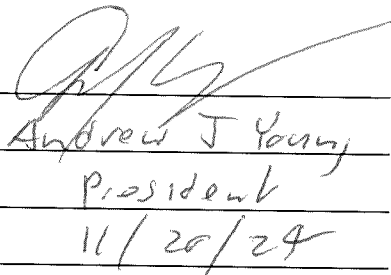 Andrew J Young
President
11/20/24